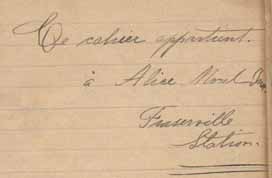 Ce cahier appartient.
à Alice
Fraserville
Station.